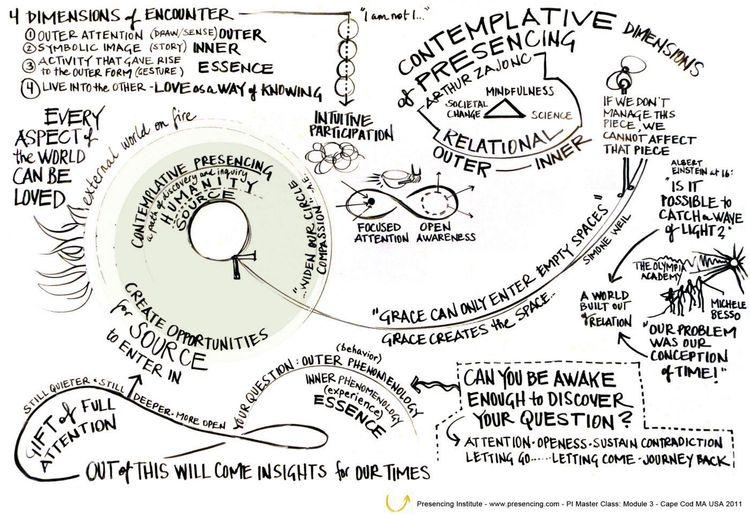 4 DIMENSIONS OF ENCOUNTER
① OUTER ATTENTION (DRAW/SENSE) OUTER
② SYMBOLIC IMAGE (STORY) INNER
③ ACTIVITY THAT GAVE RISE
to the OUTER FORM (GESTURE) ESSENCE
④ LIVE INTO the OTHER - LOVE as a WAY of KNOWING
"I am not I..."
INTUITIVE
PARTICIPATION
CONTEMPLATIVE DIMENSIONS
of PRESENCING
ARTHUR ZAJONC
MINDFULNESS
SOCIETAL
CHANGE
SCIENCE
RELATIONAL
OUTER INNER
IF WE DON'T
MANAGE THIS
PIECE, WE
CANNOT AFFECT
THAT PIECE
EVERY
ASPECT of
the WORLD
CAN BE
LOVED
external world on fire
CONTEMPLATIVE PRESENCING
a path of discovery and inquiry
HUMANITY
SOURCE
"...WIDEN OUR CIRCLE
COMPASSION".. A.E.
CREATE OPPORTUNITIES
for SOURCE
to ENTER IN
FOCUSED
ATTENTION
OPEN
AWARENESS
ALBERT
EINSTEIN at 16:
"IS IT
POSSIBLE to
CATCH a WAVE
of LIGHT?"
"GRACE CAN ONLY ENTER EMPTY SPACES"
SIMONE WEIL
GRACE CREATES the SPACE...
THE OLYMPIA
ACADEMY
MICHELE
BESSO
A WORLD
BUILT OUT
of RELATION
"OUR PROBLEM
WAS OUR
CONCEPTION
of TIME!"
STILL QUIETER • STILL DEEPER • MORE OPEN
GIFT of FULL
ATTENTION
YOUR QUESTION: OUTER PHENOMENOLOGY
(behavior)
INNER PHENOMENOLOGY
(experience)
ESSENCE
OUT of THIS WILL COME INSIGHTS for OUR TIMES
CAN YOU BE AWAKE
ENOUGH to DISCOVER
YOUR QUESTION?
ATTENTION • OPENESS • SUSTAIN CONTRADICTION
LETTING GO...... LETTING COME - JOURNEY BACK
Presencing Institute - www.presencing.com - PI Master Class: Module 3 - Cape Cod MA USA 2011